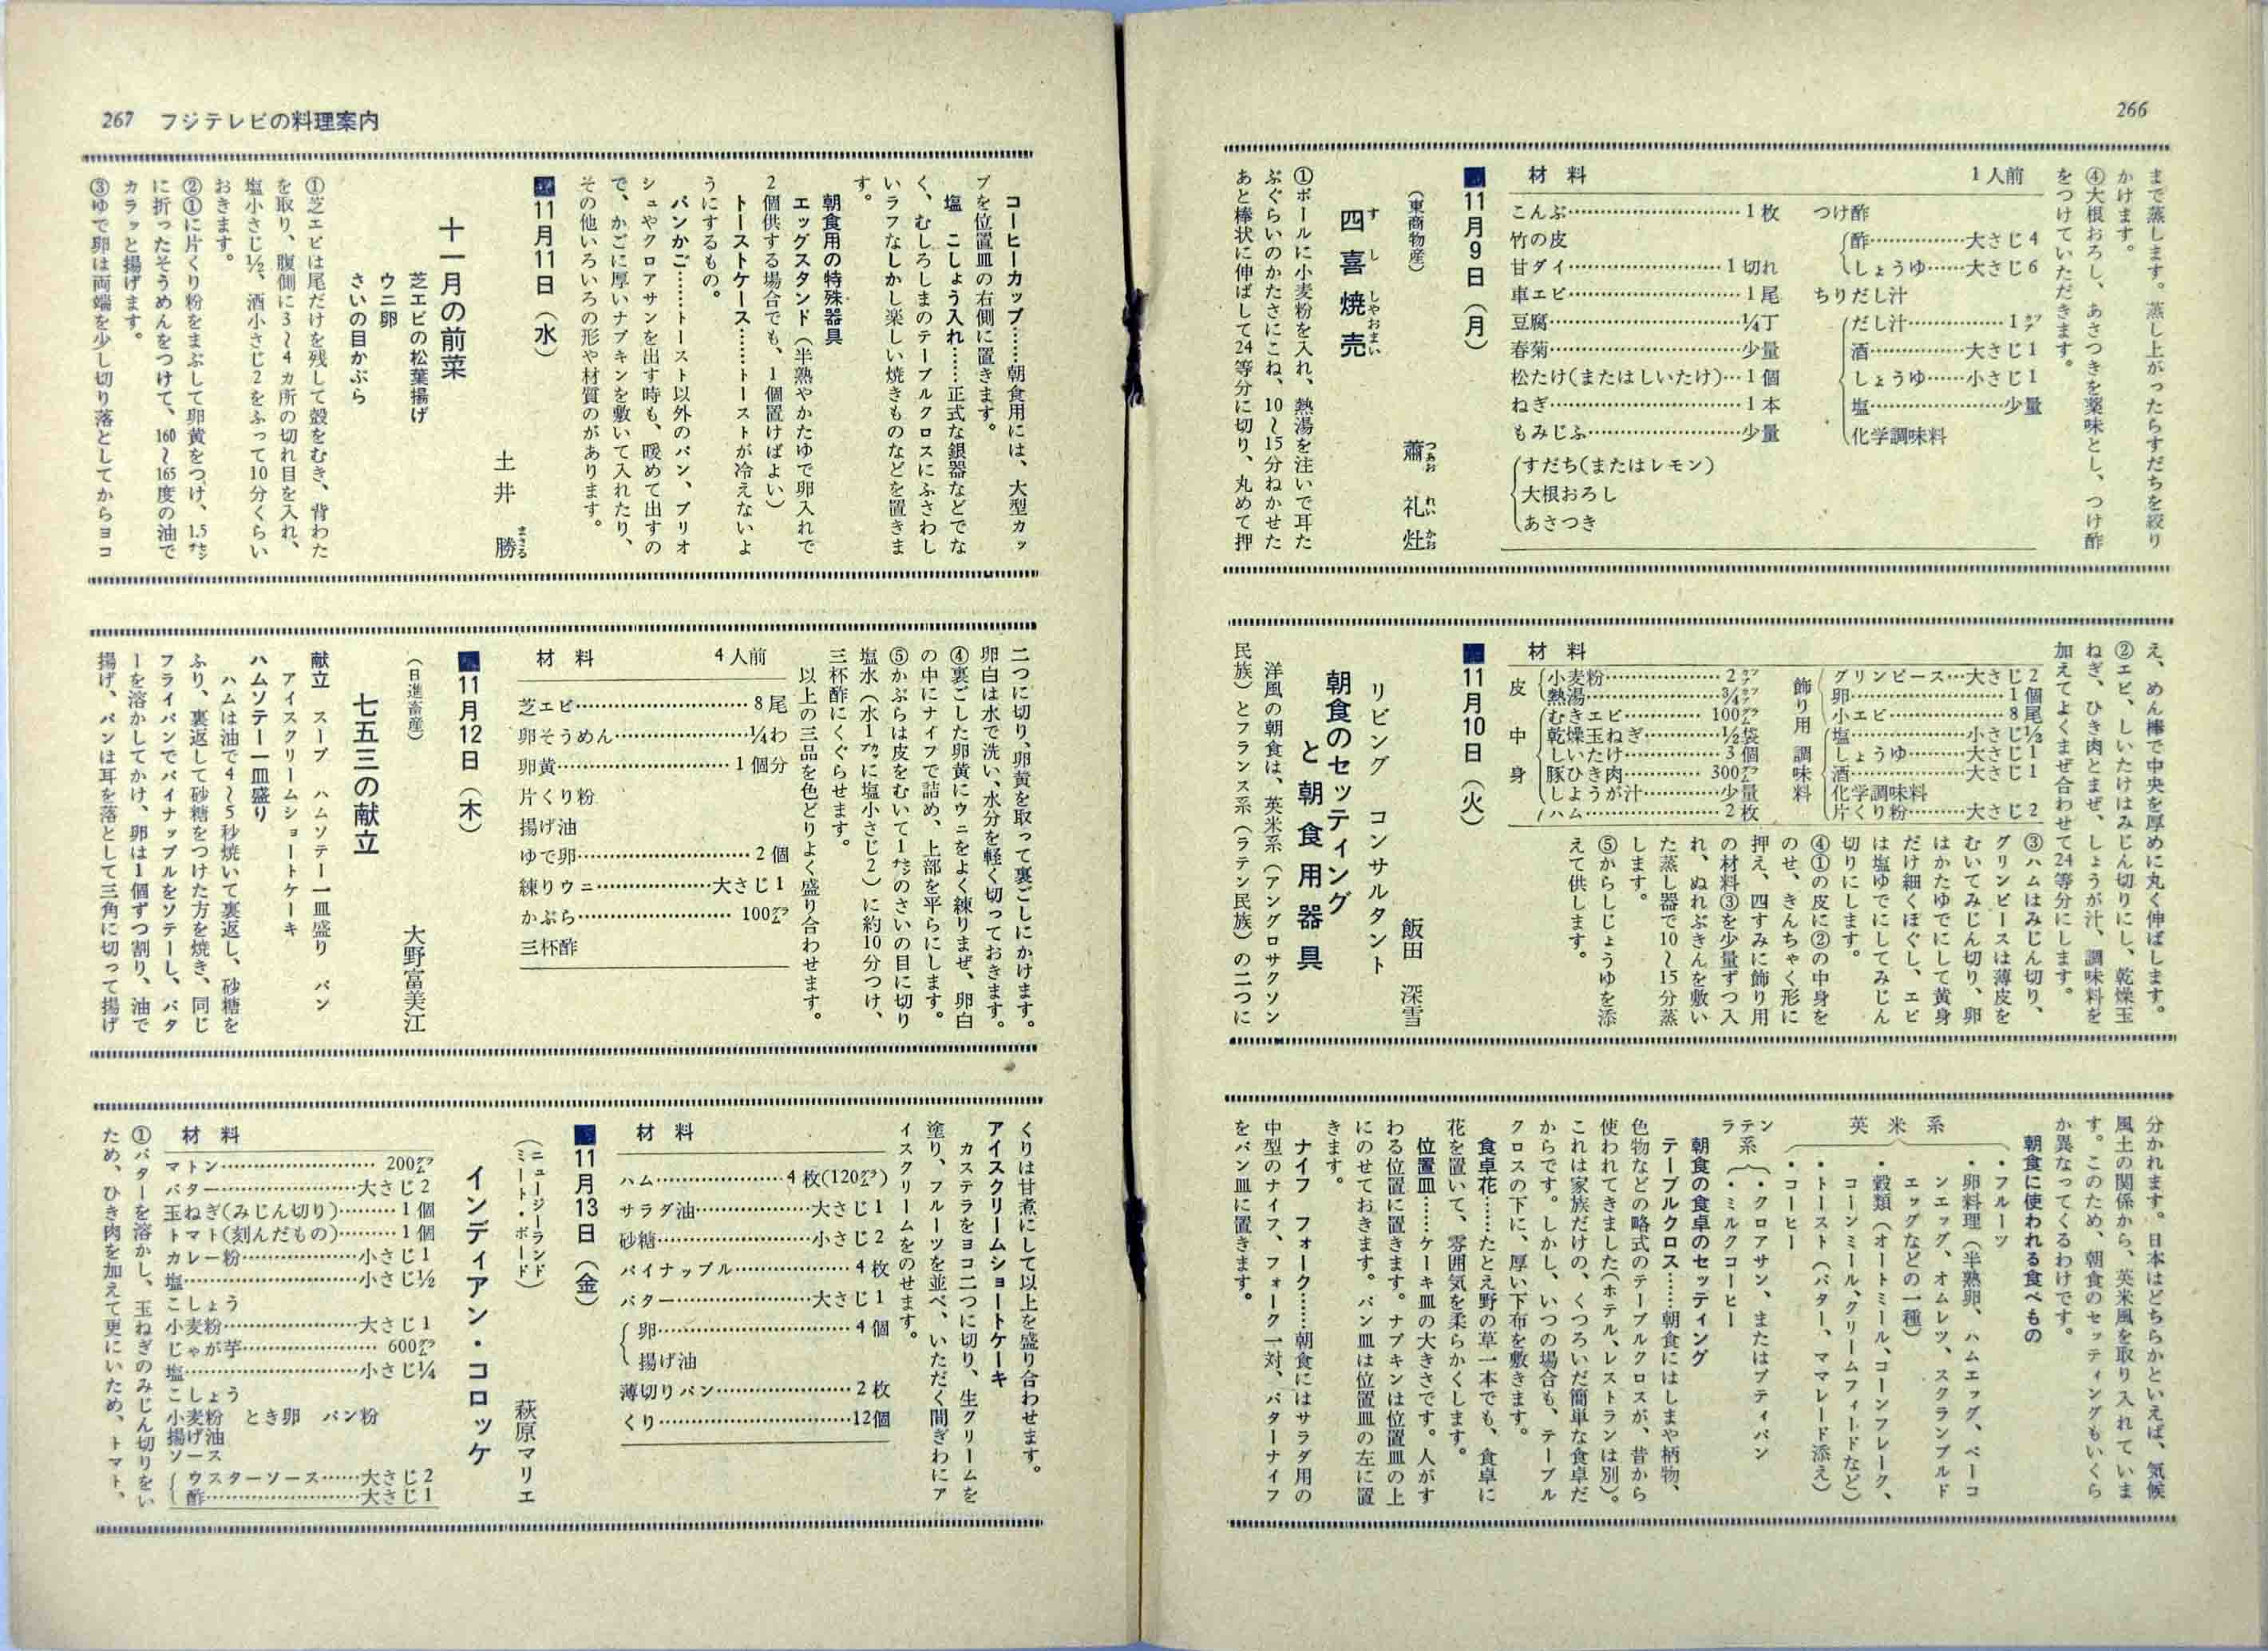 266
まで蒸します。蒸し上がったらすだちを絞り
かけます。
④大根おろし、あさつきを薬味とし、つけ酢
をつけていただきます。
材　料　　1人前
こんぶ……1枚
竹の皮
甘ダイ……1切れ
車エビ……1尾
豆腐……¼丁
春菊……少量
松たけ(またはしいたけ)…1個
ねぎ……1本
もみじふ……少量
すだち(またはレモン)
大根おろし
あさつき
つけ酢
酢……大さじ4
しょうゆ……大さじ6
ちりだし汁
だし汁……1カップ
酒……大さじ1
しょうゆ……小さじ1
塩……少量
化学調味料
■11月9日（月）
（東商物産）
蕭　礼　灶
つぁお　れい　かお
四喜焼売
すしやおまい
①ボールに小麦粉を入れ、熱湯を注いで耳た
ぶぐらいのかたさにこね、10～15分ねかせた
あと棒状に伸ばして24等分に切り、丸めて押
え、めん棒で中央を厚めに丸く伸ばします。
②エビ、しいたけはみじん切りにし、乾燥玉
ねぎ、ひき肉とまぜ、しょうが汁、調味料を
加えてよくまぜ合わせて24等分にします。
材　料
皮
小麦粉……2カップ
熱湯……¾カップ
中身
むきエビ……100グラム
乾燥玉ねぎ……½袋
しいたけ……3個
豚ひき肉……300グラム
しょうが汁……少量
飾り用
ハム……2枚
グリンピース…大さじ2
卵……1個
小エビ……8尾
調味料
塩……小さじ⅓
しょうゆ……大さじ1
酒……大さじ1
化学調味料
片くり粉……大さじ2
③ハムはみじん切り、
グリンピースは薄皮を
むいてみじん切り、卵
はかたゆでにして黄身
だけ細くほぐし、エビ
は塩ゆでにしてみじん
切りにします。
④①の皮に②の中身を
のせ、きんちゃく形に
押え、四すみに飾り用
の材料③を少量ずつ入
れ、ぬれぶきんを敷い
た蒸し器で10～15分蒸
します。
⑤からしじょうゆを添
えて供します。
■11月10日（火）
リビング　コンサルタント
飯田　深雪
朝食のセッティング
と朝食用器具
洋風の朝食は、英米系（アングロサクソン
民族）とフランス系（ラテン民族）の二つに
分かれます。日本はどちらかといえば、気候
風土の関係から、英米風を取り入れていま
す。このため、朝食のセッティングもいくら
か異なってくるわけです。
朝食に使われる食べもの
英米系
・フルーツ
・卵料理（半熟卵、ハムエッグ、ベーコ
ンエッグ、オムレツ、スクランブルド
エッグなどの一種）
・穀類（オートミール、コーンフレーク、
コーンミール、クリームフィードなど）
・トースト（バター、ママレード添え）
・コーヒー
ラテン系
・クロアサン、またはプティパン
・ミルクコーヒー
朝食の食卓のセッティング
テーブルクロス……朝食にはしまや柄物、
色物などの略式のテーブルクロスが、昔から
使われてきました（ホテル、レストランは別）。
これは家族だけの、くつろいだ簡単な食卓だ
からです。しかし、いつの場合も、テーブル
クロスの下に、厚い下布を敷きます。
食卓花……たとえ野の草一本でも、食卓に
花を置いて、雰囲気を柔らかくします。
位置皿……ケーキ皿の大きさです。人がす
わる位置に置きます。ナプキンは位置皿の上
にのせておきます。パン皿は位置皿の左に置
きます。
ナイフ　フォーク……朝食にはサラダ用の
中型のナイフ、フォーク一対、バターナイフ
をパン皿に置きます。
267　フジテレビの料理案内
コーヒーカップ……朝食用には、大型カッ
プを位置皿の右側に置きます。
塩　こしょう入れ……正式な銀器などでな
く、むしろしまのテーブルクロスにふさわし
いラフなしかし楽しい焼きものなどを置きま
す。
朝食用の特殊器具
エッグスタンド（半熟やかたゆで卵入れで
2個供する場合でも、1個置けばよい）
トーストケース……トーストが冷えないよ
うにするもの。
パンかご……トースト以外のパン、ブリオ
シュやクロアサンを出す時も、暖めて出すの
で、かごに厚いナプキンを敷いて入れたり、
その他いろいろの形や材質のがあります。
■11月11日（水）
土井　勝
まさる
十一月の前菜
芝エビの松葉揚げ
ウニ卵
さいの目かぶら
①芝エビは尾だけを残して殻をむき、背わた
を取り、腹側に3～4カ所の切れ目を入れ、
塩小さじ½、酒小さじ2をふって10分くらい
おきます。
②①に片くり粉をまぶして卵黄をつけ、1.5センチ
に折ったそうめんをつけて、160～165度の油で
カラッと揚げます。
③ゆで卵は両端を少し切り落としてからヨコ
二つに切り、卵黄を取って裏ごしにかけます。
卵白は水で洗い、水分を軽く切っておきます。
④裏ごした卵黄にウニをよく練りまぜ、卵白
の中にナイフで詰め、上部を平らにします。
⑤かぶらは皮をむいて1センチのさいの目に切り
塩水（水1カップに塩小さじ2）に約10分つけ、
三杯酢にくぐらせます。
以上の三品を色どりよく盛り合わせます。
材　料　　4人前
芝エビ……8尾
卵そうめん……¼わ
卵黄……1個分
片くり粉
揚げ油
ゆで卵……2個
練りウニ……大さじ1
かぶら……100グラム
三杯酢
■11月12日（木）
（日進畜産）
大野富美江
七五三の献立
献立　スープ　ハムソテー一皿盛り　パン
アイスクリームショートケーキ
ハムソテー一皿盛り
ハムは油で4～5秒焼いて裏返し、砂糖を
ふり、裏返して砂糖をつけた方を焼き、同じ
フライパンでパイナップルをソテーし、バタ
ーを溶かしてかけ、卵は1個ずつ割り、油で
揚げ、パンは耳を落として三角に切って揚げ
くりは甘煮にして以上を盛り合わせます。
アイスクリームショートケーキ
カステラをヨコ二つに切り、生クリームを
塗り、フルーツを並べ、いただく間ぎわにア
イスクリームをのせます。
材　料
ハム……4枚(120グラム)
サラダ油……大さじ1
砂糖……小さじ2
パイナップル……4枚
バター……大さじ1
卵……4個
揚げ油
薄切りパン……2枚
くり……12個
■11月13日（金）
（ニュージーランド
ミート・ボード）
萩原マリエ
インディアン・コロッケ
材　料
マトン……200グラム
バター……大さじ2
玉ねぎ(みじん切り)……1個
トマト(刻んだもの)……1個
カレー粉……小さじ1
塩……小さじ½
こしょう
小麦粉……大さじ1
じゃが芋……600グラム
塩……小さじ¼
こしょう
小麦粉　とき卵　パン粉
揚げ油
ソース
ウスターソース……大さじ2
酢……大さじ1
①バターを溶かし、玉ねぎのみじん切りをい
ため、ひき肉を加えて更にいため、トマト、